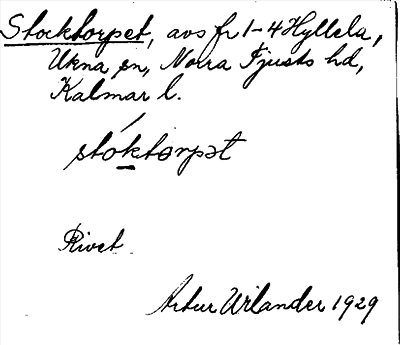 Stocktorpet, avs fr 1-4 Hyllela,
Ukna sn, Norra Tjusts hd,
Kalmar l.
stoktorpət
Rivet
Artur Wilander 1929